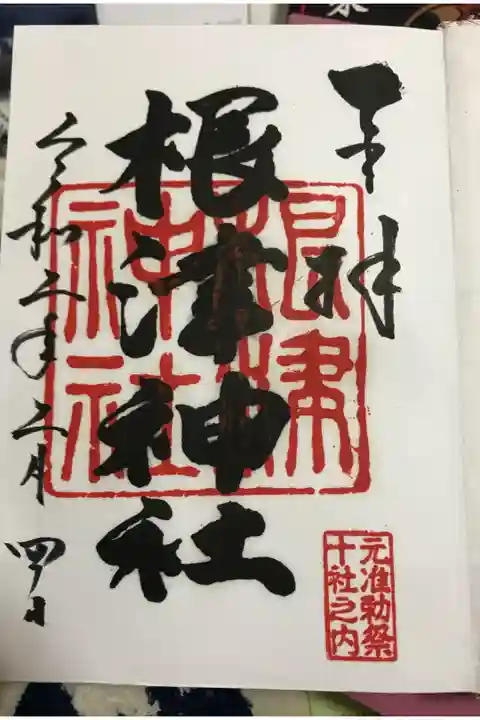 奉拝
根津神社
令和二年二月四日
根津神社
元准勅祭
十社之内